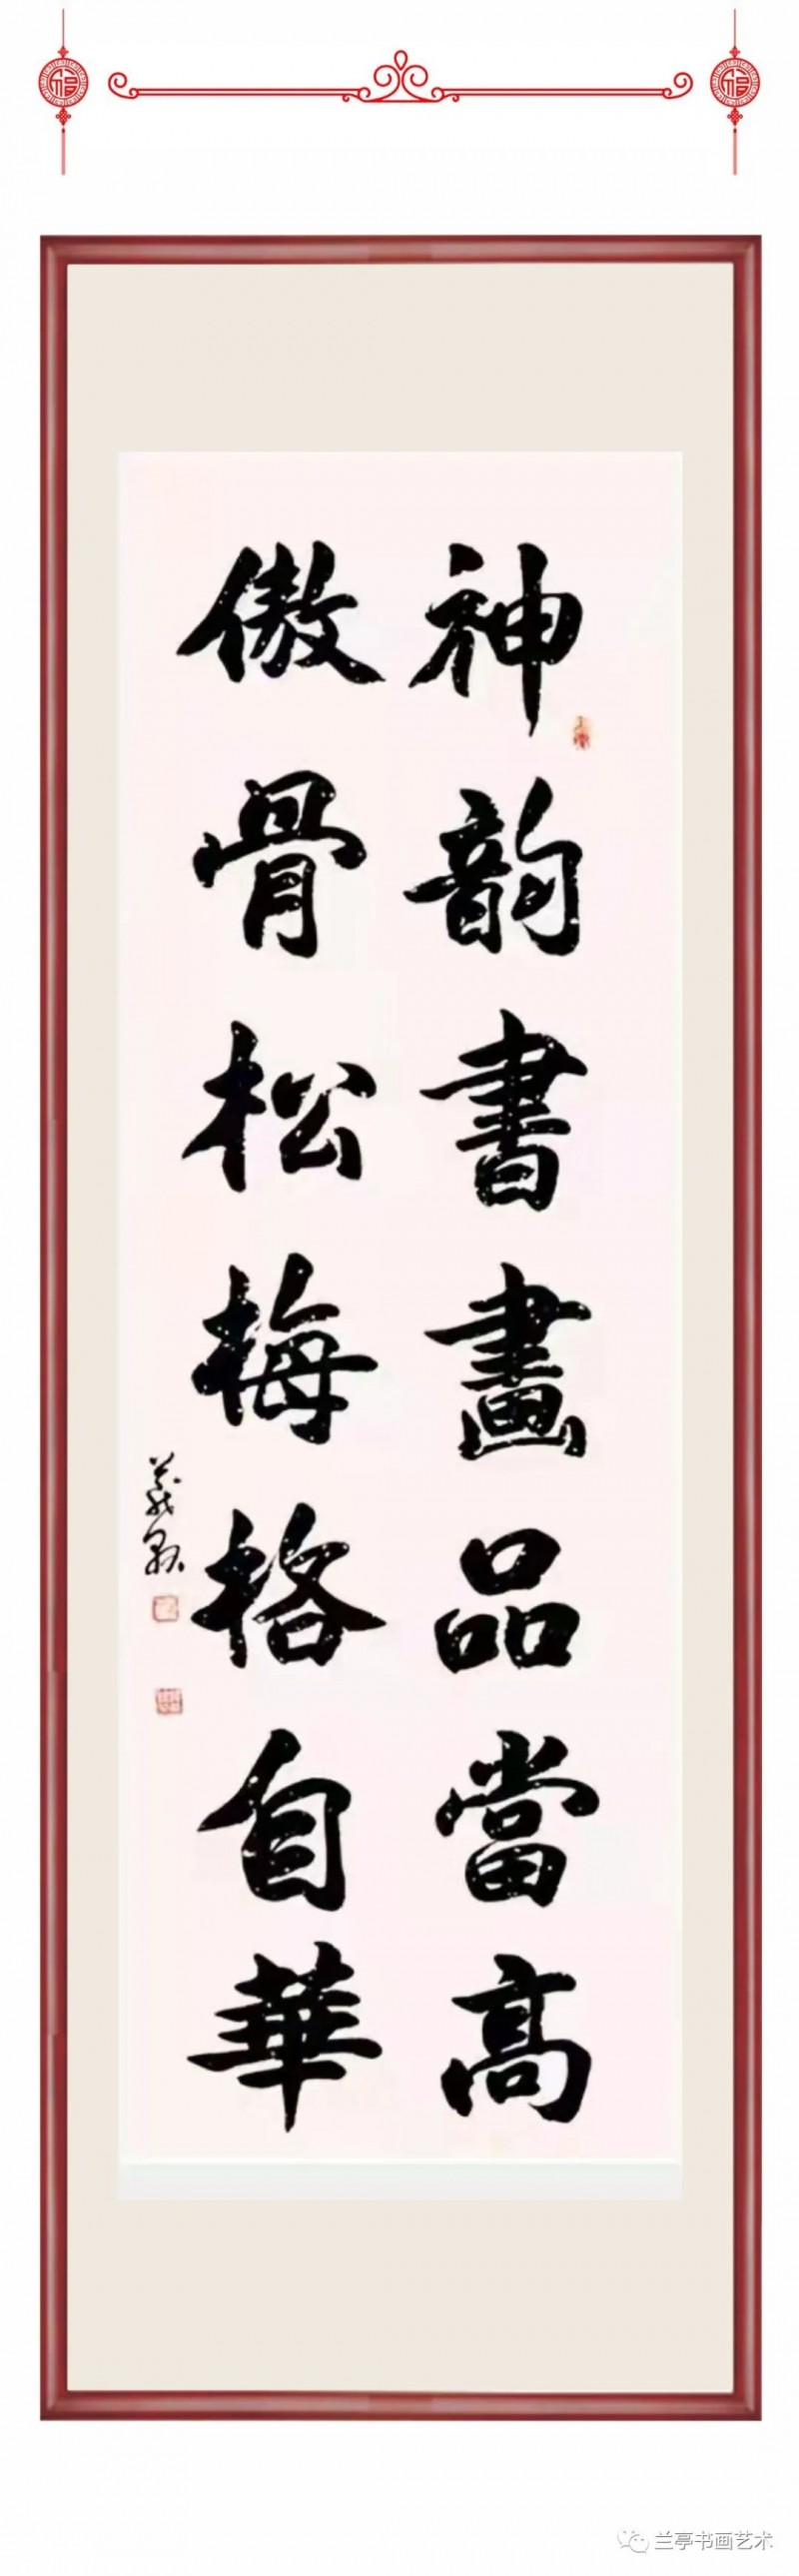 神韵書畫品當高
傲骨松梅格自華
兰亭书画艺术